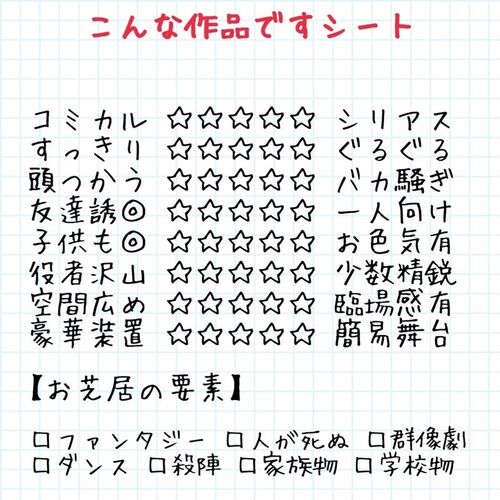 こんな作品ですシート
コミカル ☆☆☆☆☆ シリアス
すっきり ☆☆☆☆☆ ぐるぐる
頭つかう ☆☆☆☆☆ バカ騒ぎ
友達誘◎ ☆☆☆☆☆ 一人向け
子供も◎ ☆☆☆☆☆ お色気有
役者沢山 ☆☆☆☆☆ 少数精鋭
空間広め ☆☆☆☆☆ 臨場感有
豪華装置 ☆☆☆☆☆ 簡易舞台
【お芝居の要素】
□ファンタジー □人が死ぬ □群像劇
□ダンス □殺陣 □家族物 □学校物